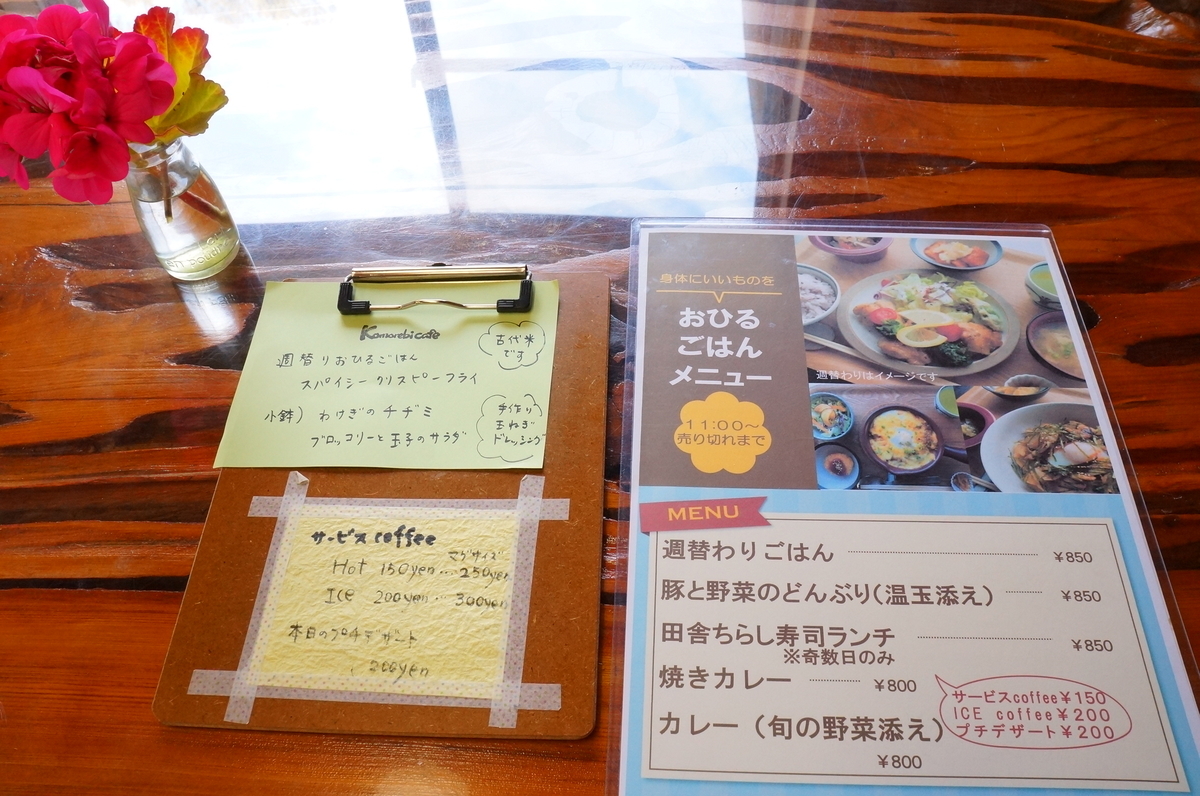 Komorebi cafe
古代米
です
週替りおひるごはん
スパイシークリスピーフライ
小鉢) わけぎのチヂミ
ブロッコリーと玉子のサラダ
手作り
玉ねぎ
ドレッシング
サービスcoffee
マグサイズ
Hot 150yen … 250yen
ICE 200yen … 300yen
本日のプチデザート
200yen
身体にいいものを
おひる
ごはん
メニュー
11:00～
売り切れまで
週替わりはイメージです
MENU
週替わりごはん ¥850
豚と野菜のどんぶり(温玉添え) ¥850
田舎ちらし寿司ランチ ¥850
※奇数日のみ
焼きカレー ¥800
カレー（旬の野菜添え）
¥800
サービスcoffee¥150
ICE coffee¥200
プチデザート¥200